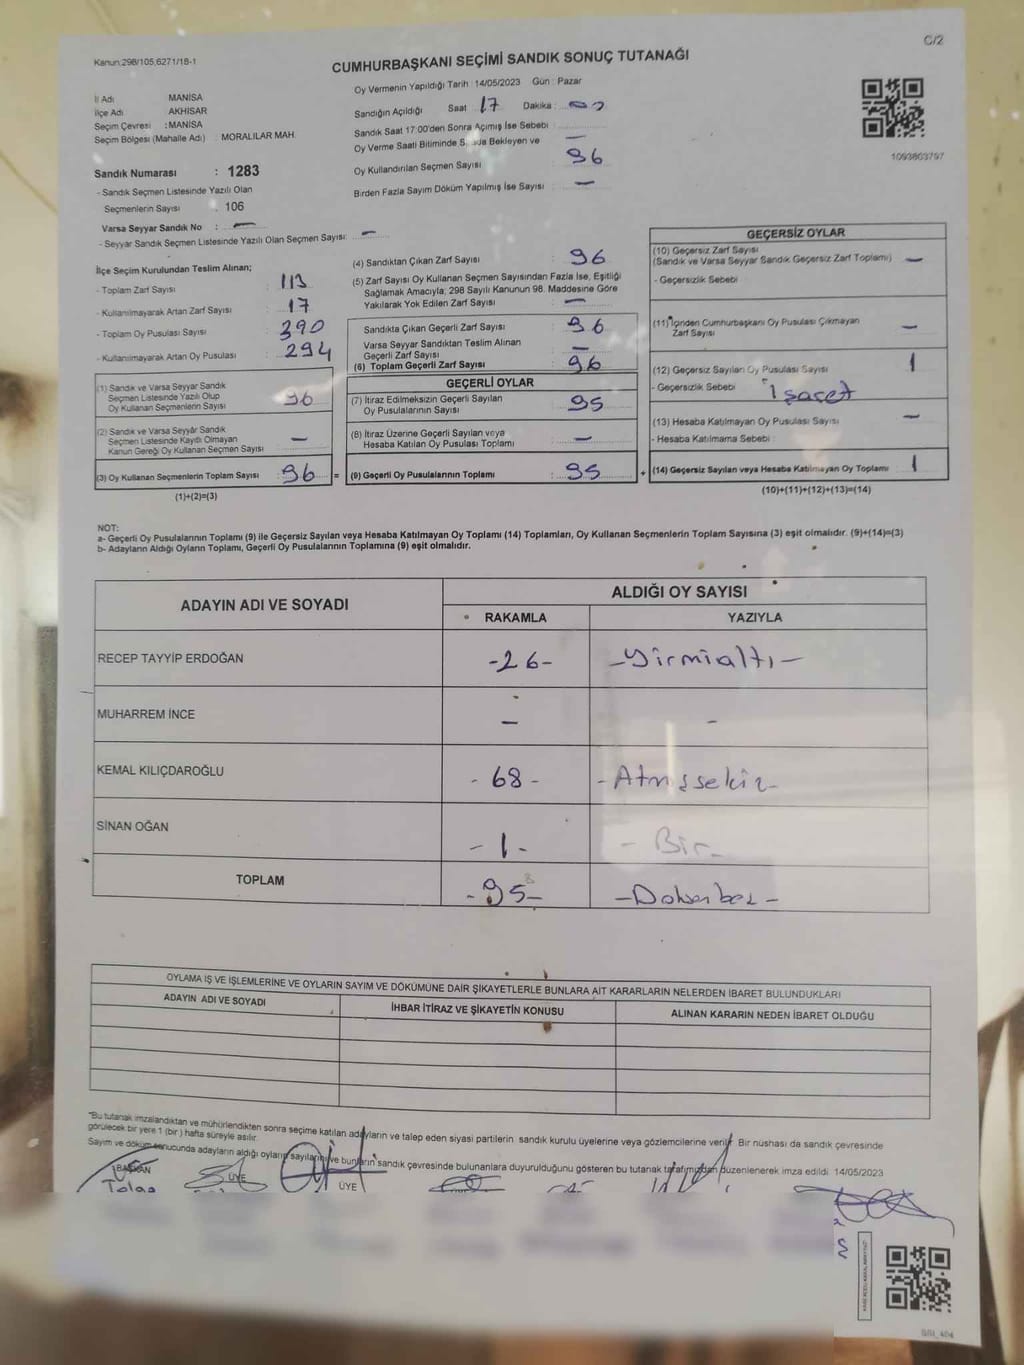 C/2
Kanun:298/105,6271/18-1
CUMHURBAŞKANI SEÇİMİ SANDIK SONUÇ TUTANAĞI
Oy Vermenin Yapıldığı Tarih : 14/05/2023 Gün : Pazar
İl Adı MANİSA
İlçe Adı AKHİSAR
Seçim Çevresi : MANİSA
Seçim Bölgesi (Mahalle Adı) : MORALILAR MAH.
Sandık Numarası : 1283
- Sandık Seçmen Listesinde Yazılı Olan
Seçmenlerin Sayısı 106
Varsa Seyyar Sandık No : —
- Seyyar Sandık Seçmen Listesinde Yazılı Olan Seçmen Sayısı: —
Sandığın Açıldığı Saat 17 Dakika :
Sandık Saat 17:00'den Sonra Açılmış İse Sebebi :
Oy Verme Saati Bitiminde Bekleyen ve —
Oy Kullandırılan Seçmen Sayısı 96
Birden Fazla Sayım Döküm Yapılmış İse Sayısı —
1093803797
İlçe Seçim Kurulundan Teslim Alınan;
- Toplam Zarf Sayısı 113
- Kullanılmayarak Artan Zarf Sayısı 17
- Toplam Oy Pusulası Sayısı 390
- Kullanılmayarak Artan Oy Pusulası 294
(1) Sandık ve Varsa Seyyar Sandık
Seçmen Listesinde Yazılı Olup
Oy Kullanan Seçmenlerin Sayısı 96
(2) Sandık ve Varsa Seyyar Sandık
Seçmen Listesinde Kayıtlı Olmayan
Kanun Gereği Oy Kullanan Seçmen Sayısı —
(3) Oy Kullanan Seçmenlerin Toplam Sayısı 96 =
(1)+(2)=(3)
(4) Sandıktan Çıkan Zarf Sayısı 96
(5) Zarf Sayısı Oy Kullanan Seçmen Sayısından Fazla İse, Eşitliği
Sağlamak Amacıyla, 298 Sayılı Kanunun 98. Maddesine Göre
Yakılarak Yok Edilen Zarf Sayısı —
Sandıkta Çıkan Geçerli Zarf Sayısı 96
Varsa Seyyar Sandıktan Teslim Alınan
Geçerli Zarf Sayısı —
(6) Toplam Geçerli Zarf Sayısı 96
GEÇERLİ OYLAR
(7) İtiraz Edilmeksizin Geçerli Sayılan
Oy Pusulalarının Sayısı 95
(8) İtiraz Üzerine Geçerli Sayılan veya
Hesaba Katılan Oy Pusulası Toplamı —
(9) Geçerli Oy Pusulalarının Toplamı 95 +
GEÇERSİZ OYLAR
(10) Geçersiz Zarf Sayısı
(Sandık ve Varsa Seyyar Sandık Geçersiz Zarf Toplamı) —
- Geçersizlik Sebebi
(11) İçinden Cumhurbaşkanı Oy Pusulası Çıkmayan
Zarf Sayısı —
(12) Geçersiz Sayılan Oy Pusulası Sayısı 1
- Geçersizlik Sebebi İşaret
(13) Hesaba Katılmayan Oy Pusulası Sayısı —
- Hesaba Katılmama Sebebi :
(14) Geçersiz Sayılan veya Hesaba Katılmayan Oy Toplamı 1
(10)+(11)+(12)+(13)=(14)
NOT:
a- Geçerli Oy Pusulalarının Toplamı (9) ile Geçersiz Sayılan veya Hesaba Katılmayan Oy Toplamı (14) Toplamları, Oy Kullanan Seçmenlerin Toplam Sayısına (3) eşit olmalıdır. (9)+(14)=(3)
b- Adayların Aldığı Oyların Toplamı, Geçerli Oy Pusulalarının Toplamına (9) eşit olmalıdır.
ADAYIN ADI VE SOYADI ALDIĞI OY SAYISI
RAKAMLA YAZIYLA
RECEP TAYYİP ERDOĞAN -26- -Yirmialtı-
MUHARREM İNCE — -
KEMAL KILIÇDAROĞLU -68- -Atmışsekiz-
SİNAN OĞAN -1- -Bir-
TOPLAM -95- -Doksanbeş-
OYLAMA İŞ VE İŞLEMLERİNE VE OYLARIN SAYIM VE DÖKÜMÜNE DAİR ŞİKAYETLERLE BUNLARA AİT KARARLARIN NELERDEN İBARET BULUNDUKLARI
ADAYIN ADI VE SOYADI İHBAR İTİRAZ VE ŞİKAYETİN KONUSU ALINAN KARARIN NEDEN İBARET OLDUĞU
*Bu tutanak imzalandıktan ve mühürlendikten sonra seçime katılan adayların ve talep eden siyasi partilerin sandık kurulu üyelerine veya gözlemcilerine verilir. Bir nüshası da sandık çevresinde
görülecek bir yere 1 (bir) hafta süreyle asılır.
Sayım ve döküm sonucunda adayların aldığı oyların sayılarını ve bunların sandık çevresinde bulunanlara duyurulduğunu gösteren bu tutanak tarafımızdan düzenlenerek imza edildi. 14/05/2023
BAŞKAN ÜYE ÜYE